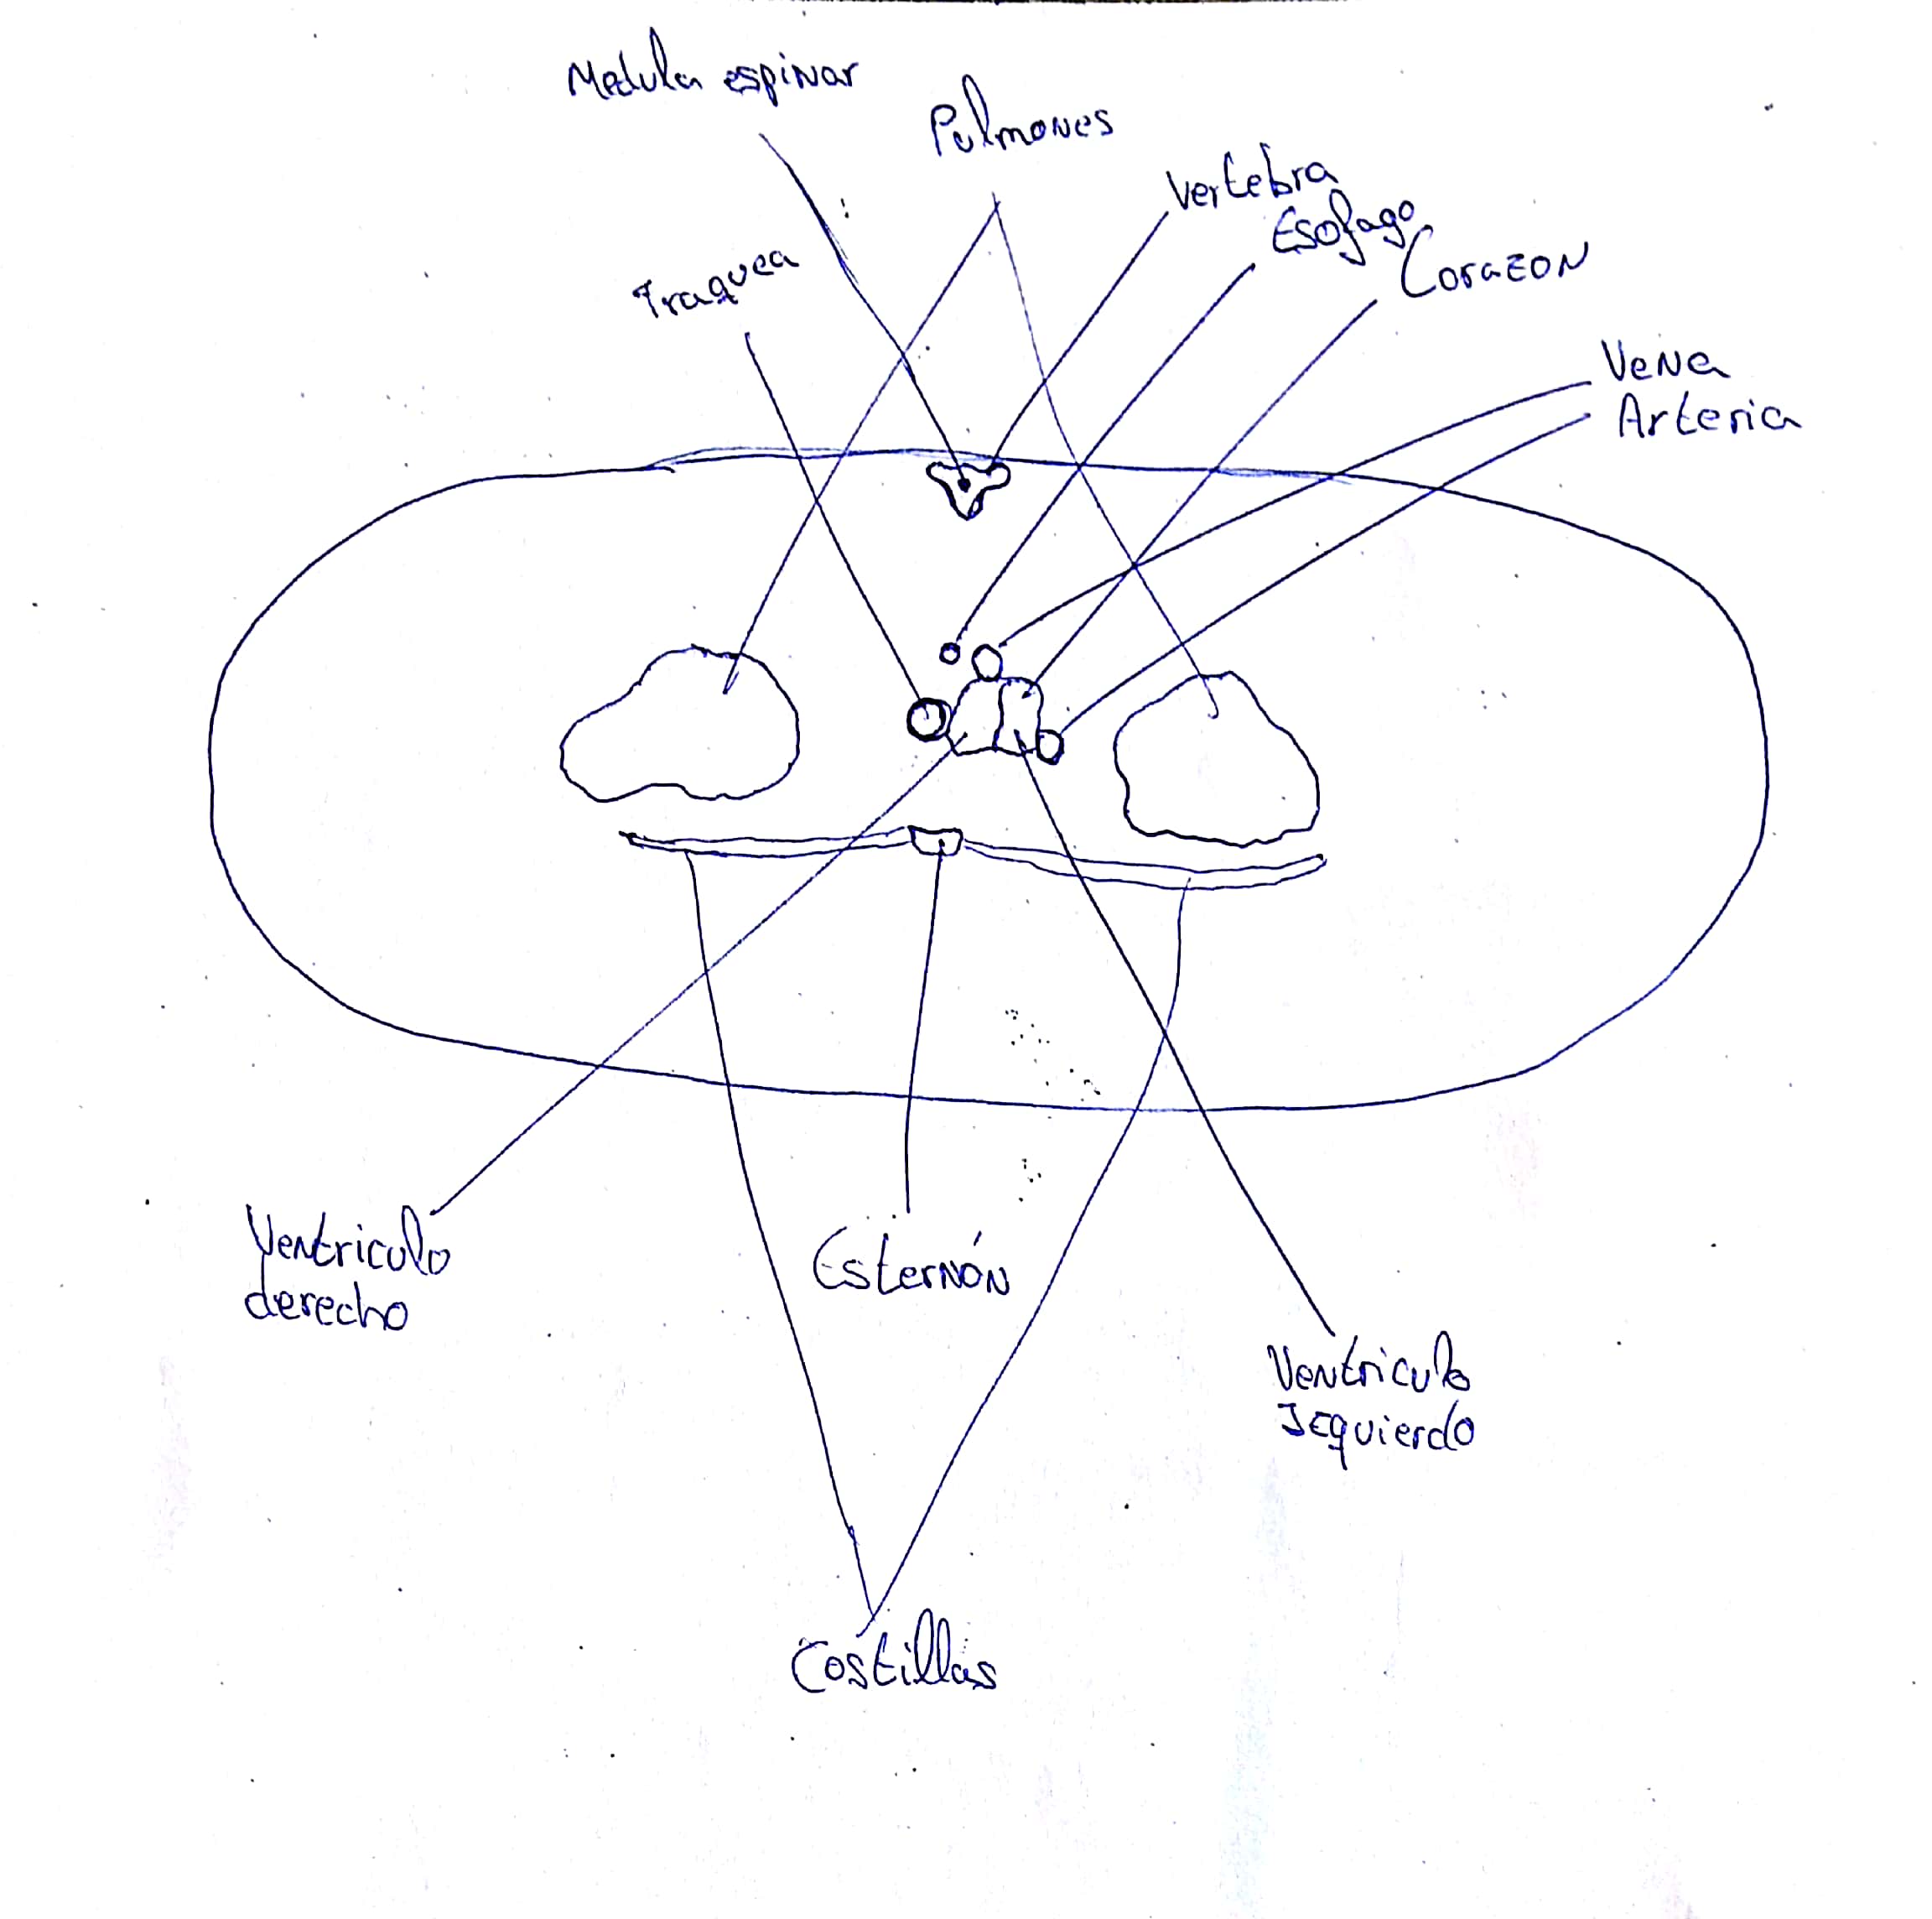 Medula espinar
Pulmones
Vertebra
Esofago
Corazon
Traquea
Vena
Arteria
Ventriculo
derecho
Esternón
Ventriculo
Izquierdo
Costillas